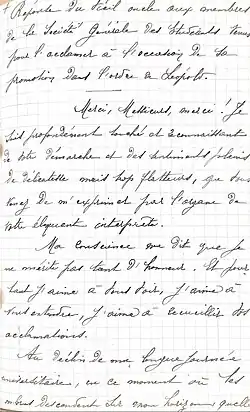 Réponse du vieil oncle aux membres
de la Société Générale des Etudiants venus
pour l'acclamer à l'occasion de sa
promotion dans l'ordre de Léopold.
Merci, Messieurs, merci! Je
suis profondément touché et reconnaissant
de votre démarche et des sentiments pleins
de délicatesse mais trop flatteurs, que vous
venez de m'exprimer par l'organe de
votre éloquent interprète.
Ma conscience me dit que je
ne mérite pas tant d'honneur. Et pour
tant j'aime à vous voir, j'aime à
vous entendre, j'aime à recueillir vos
acclamations.
Au déclin de ma longue journée
universitaire, en ce moment où les
ombres descendent sur mon horizon, quelle